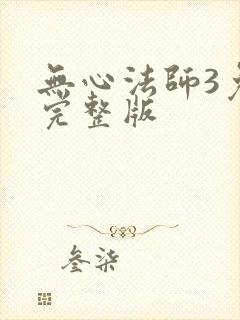 無心法師3
完整版
叁柒